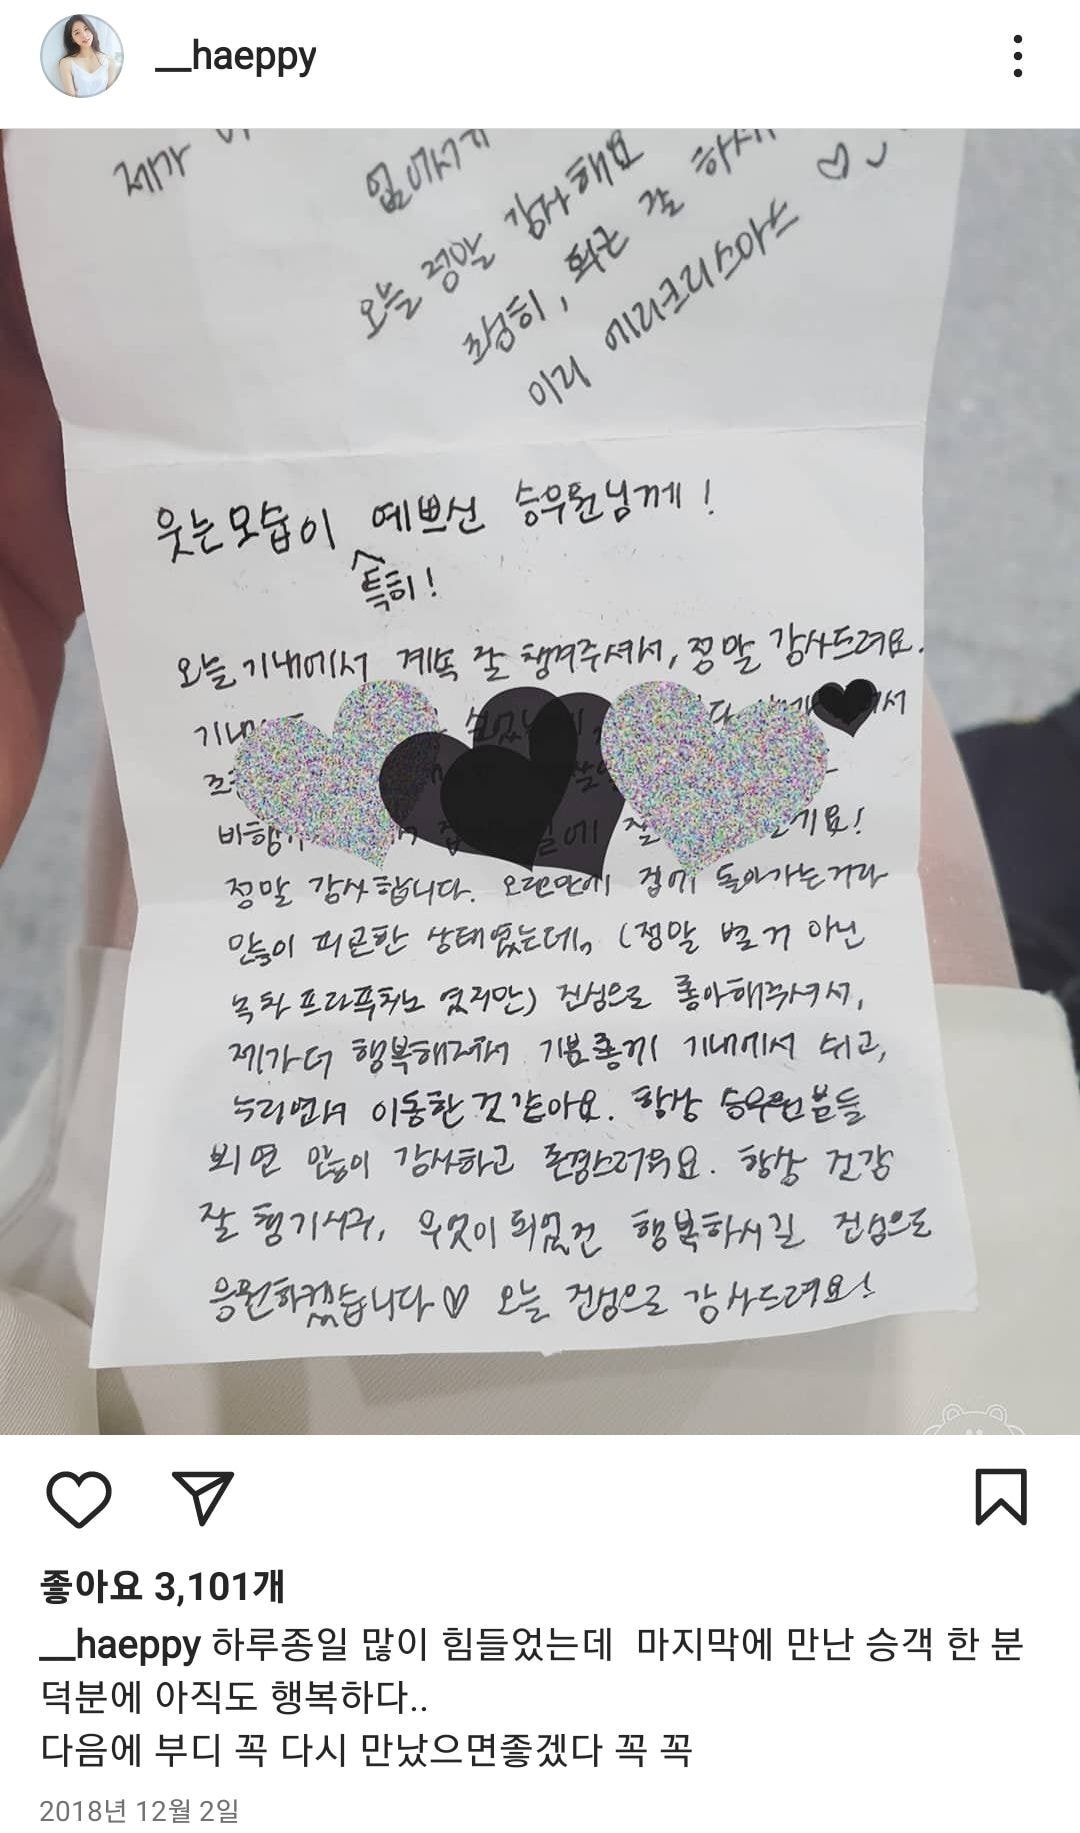 __haeppy
제가
오늘 정말 감사해요
조심히, 퇴근 잘
미리 메리크리스마스
웃는모습이 예쁘신 승무원님께!
특히!
오늘 기내에서 계속 잘 챙겨주셔서, 정말 감사드려요.
정말 감사합니다. 오랜만에 집에 돌아가는거라
많이 피곤한 상태였는데, (정말 별거 아닌
녹차 프라푸치노 였지만) 진심으로 좋아해주셔서,
제가 더 행복해져서 기분좋게 기내에서 쉬고,
누리면서 이동한 것 같아요. 항상 승무원분들
뵈면 많이 감사하고 존경스러워요. 항상 건강
잘 챙기시구, 무엇이 되었건 행복하시길 진심으로
응원하겠습니다♡ 오늘 진심으로 감사드려요!
좋아요 3,101개
__haeppy 하루종일 많이 힘들었는데 마지막에 만난 승객 한 분
덕분에 아직도 행복하다..
다음에 부디 꼭 다시 만났으면좋겠다 꼭 꼭
2018년 12월 2일